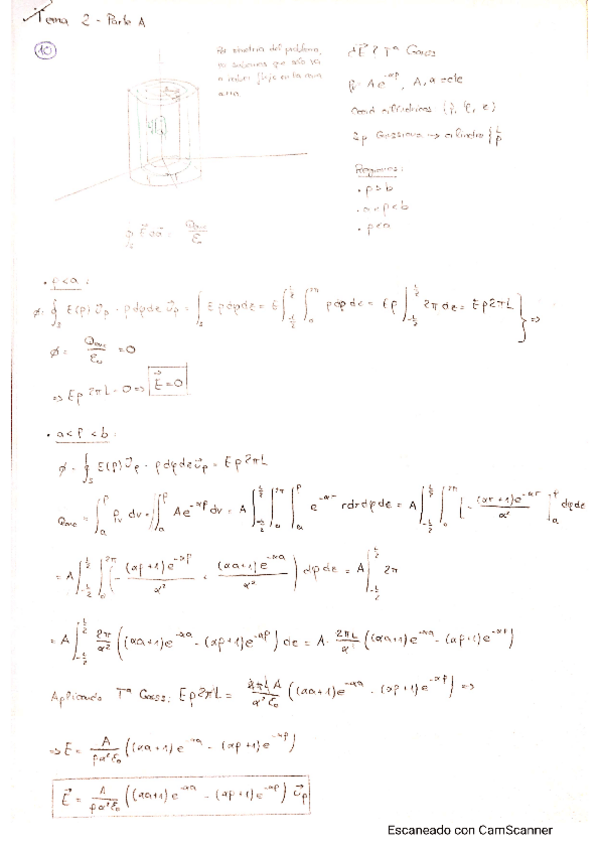 Tema 2 - Parte A
10
Por simetría del problema,
ya sabemos que sólo va
a haber flujo en la cara
¿E? Tª Gauss
ρ = A e^{-αρ}, A, α = cte
Coord. cilíndricas (ρ, φ, z)
Sp Gaussiana → cilindro { L ρ
Regiones:
· ρ>b
· a<ρ<b
· ρ<a
∮_S E ds = Q_enc/ε
· ρ<a :
φ = ∮_S E(ρ) u_ρ · ρ dφ dz u_ρ = ∫_S E ρ dφ dz = E ∫_{-L/2}^{L/2} ∫_0^{2π} ρ dφ dz = Eρ ∫_{-L/2}^{L/2} 2π dz = E ρ 2π L } ⇒
φ = Q_enc/ε₀ = 0
⇒ E ρ 2π L = 0 ⇒ E = 0
· a < ρ < b :
φ = ∮_S E(ρ) u_ρ · ρ dφ dz u_ρ = E ρ 2π L
Q_enc = ∫_a^ρ ρ_v dv = ∫_a^ρ A e^{-αρ} dv = A ∫_{-L/2}^{L/2} ∫_0^{2π} ∫_a^ρ e^{-αr} r dr dφ dz = A ∫_{-L/2}^{L/2} ∫_0^{2π} [ - (αr+1) e^{-αr} / α² ]_a^ρ dφ dz
= A ∫_{-L/2}^{L/2} ∫_0^{2π} ( - (αρ+1) e^{-αρ} / α² + (αa+1) e^{-αa} / α² ) dφ dz = A ∫_{-L/2}^{L/2} 2π
= A ∫_{-L/2}^{L/2} 2π/α² ((αa+1) e^{-αa} - (αρ+1) e^{-αρ}) dz = A · 2πL/α² ((αa+1) e^{-αa} - (αρ+1) e^{-αρ})
Aplicando Tª Gauss: E ρ 2π L = 2π L A / α² ε₀ ((αa+1) e^{-αa} - (αρ+1) e^{-αρ}) ⇒
⇒ E = A / ρ α² ε₀ ((αa+1) e^{-αa} - (αρ+1) e^{-αρ})
E = A / ρ α² ε₀ ((αa+1) e^{-αa} - (αρ+1) e^{-αρ}) u_ρ
Escaneado con CamScanner